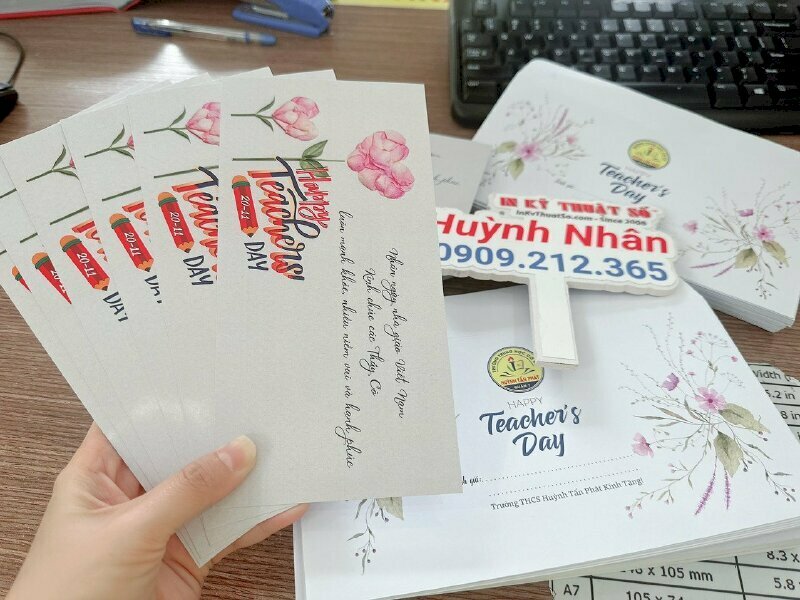 Happy
Teachers'
20-11
DAY
Nhân ngày nhà giáo Việt Nam
Kính chúc các Thầy, Cô
luôn mạnh khỏe, nhiều niềm vui và hạnh phúc
20-11
20-11
20-11
DAY
Teacher's
Day
IN KỸ THUẬT SỐ
InKyThuatSo.com - Since 2006
Huỳnh Nhân
0909.212.365
HUỲNH TẤN PHÁT
HAPPY
Teacher's
Day
Trường THCS Huỳnh Tấn Phát Kính Tặng!
Width (
8.3 x
x 105 mm
5.8
A7
105 x 74